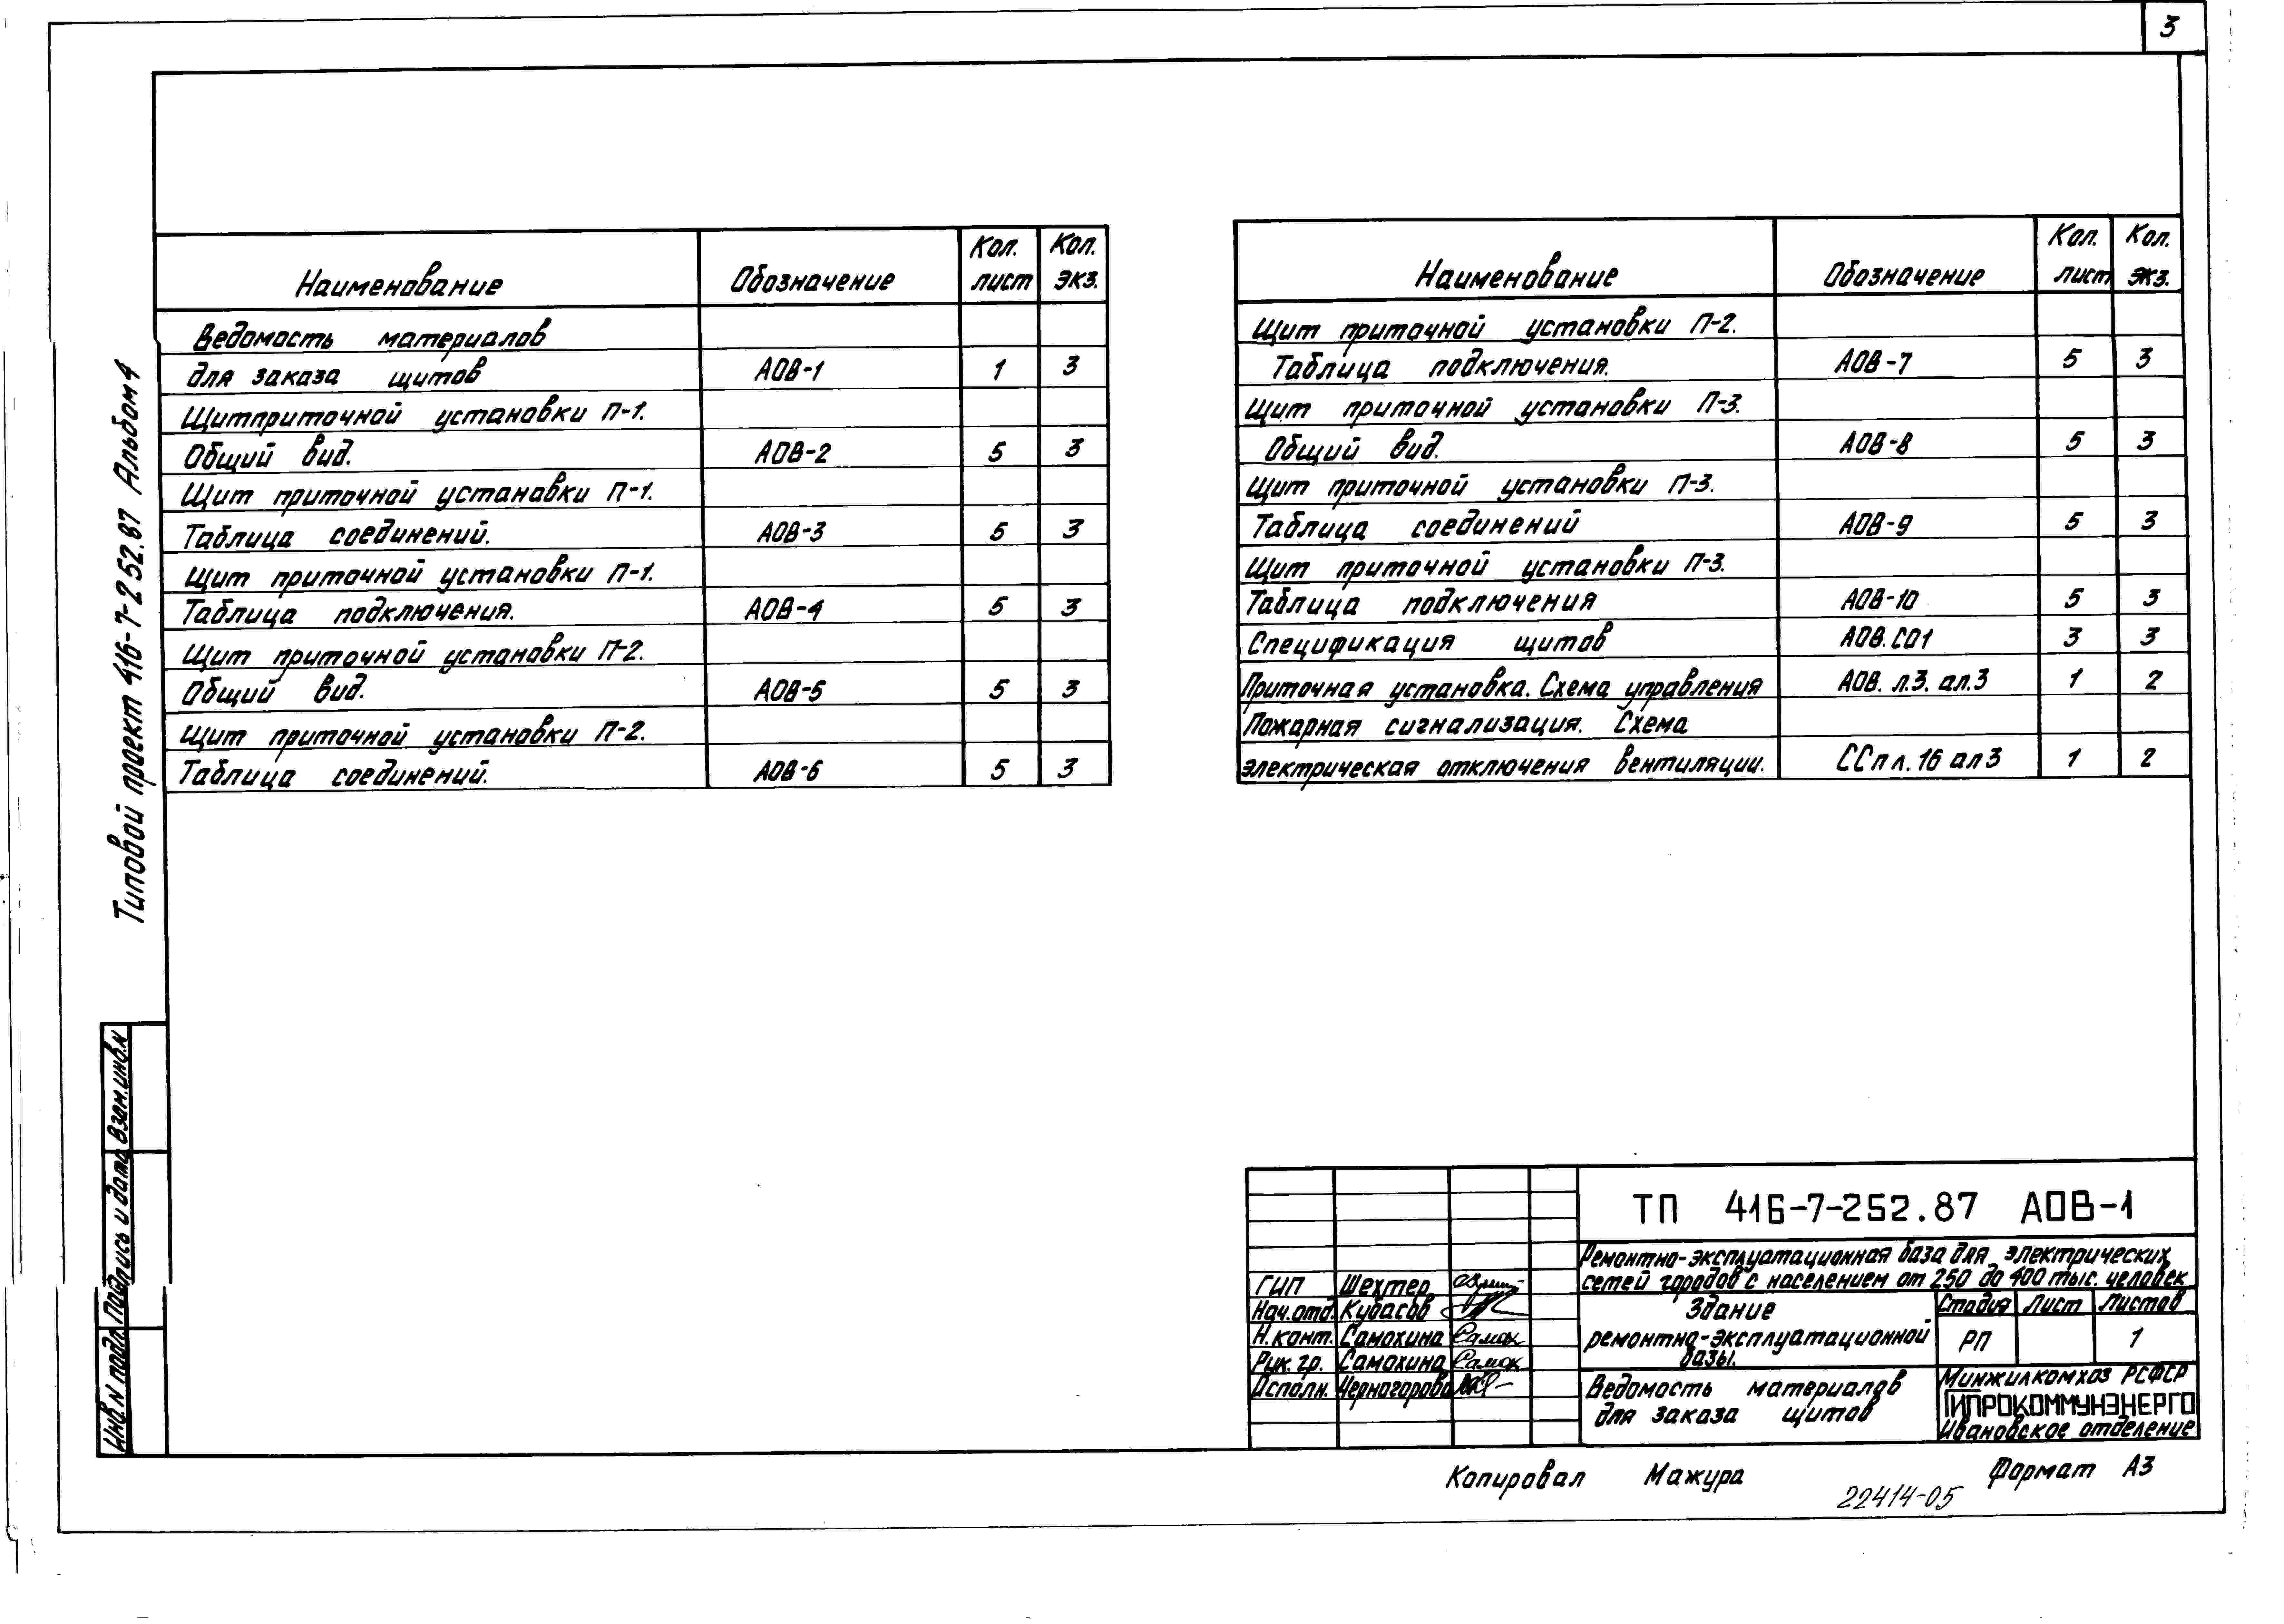 3
Типовой проект 416-7-252.87 Альбом 4
Наименование Обозначение Кол. лист Кол. экз.
Ведомость материалов
для заказа щитов АОВ-1 1 3
Щитприточной установки П-1.
Общий вид. АОВ-2 5 3
Щит приточной установки П-1.
Таблица соединений. АОВ-3 5 3
Щит приточной установки П-1.
Таблица подключения. АОВ-4 5 3
Щит приточной установки П-2.
Общий вид. АОВ-5 5 3
Щит приточной установки П-2.
Таблица соединений. АОВ-6 5 3
Наименование Обозначение Кол. лист Кол. экз.
Щит приточной установки П-2.
Таблица подключения. АОВ-7 5 3
Щит приточной установки П-3.
Общий вид. АОВ-8 5 3
Щит приточной установки П-3.
Таблица соединений АОВ-9 5 3
Щит приточной установки П-3.
Таблица подключения АОВ-10 5 3
Спецификация щитов АОВ.СО1 3 3
Приточная установка. Схема управления АОВ. л.3. ал.3 1 2
Пожарная сигнализация. Схема
электрическая отключения вентиляции. ССп л.16 ал3 1 2
Взам.инв.N
Подпись и дата
Инв.N подл.
ТП 416-7-252.87 АОВ-1
Ремонтно-эксплуатационная база для электрических
сетей городов с населением от 250 до 400 тыс. человек
ГИП Шехтер
Нач.отд. Кубасов
Н.конт. Самохина Самох
Рук.гр. Самохина Самох
Исполн. Черногорова
Здание
ремонтно-эксплуатационной
базы.
Стадия Лист Листов
РП 1
Ведомость материалов
для заказа щитов
Минжилкомхоз РСФСР
ГИПРОКОММУНЭНЕРГО
Ивановское отделение
Копировал Мажура Формат А3
22414-05